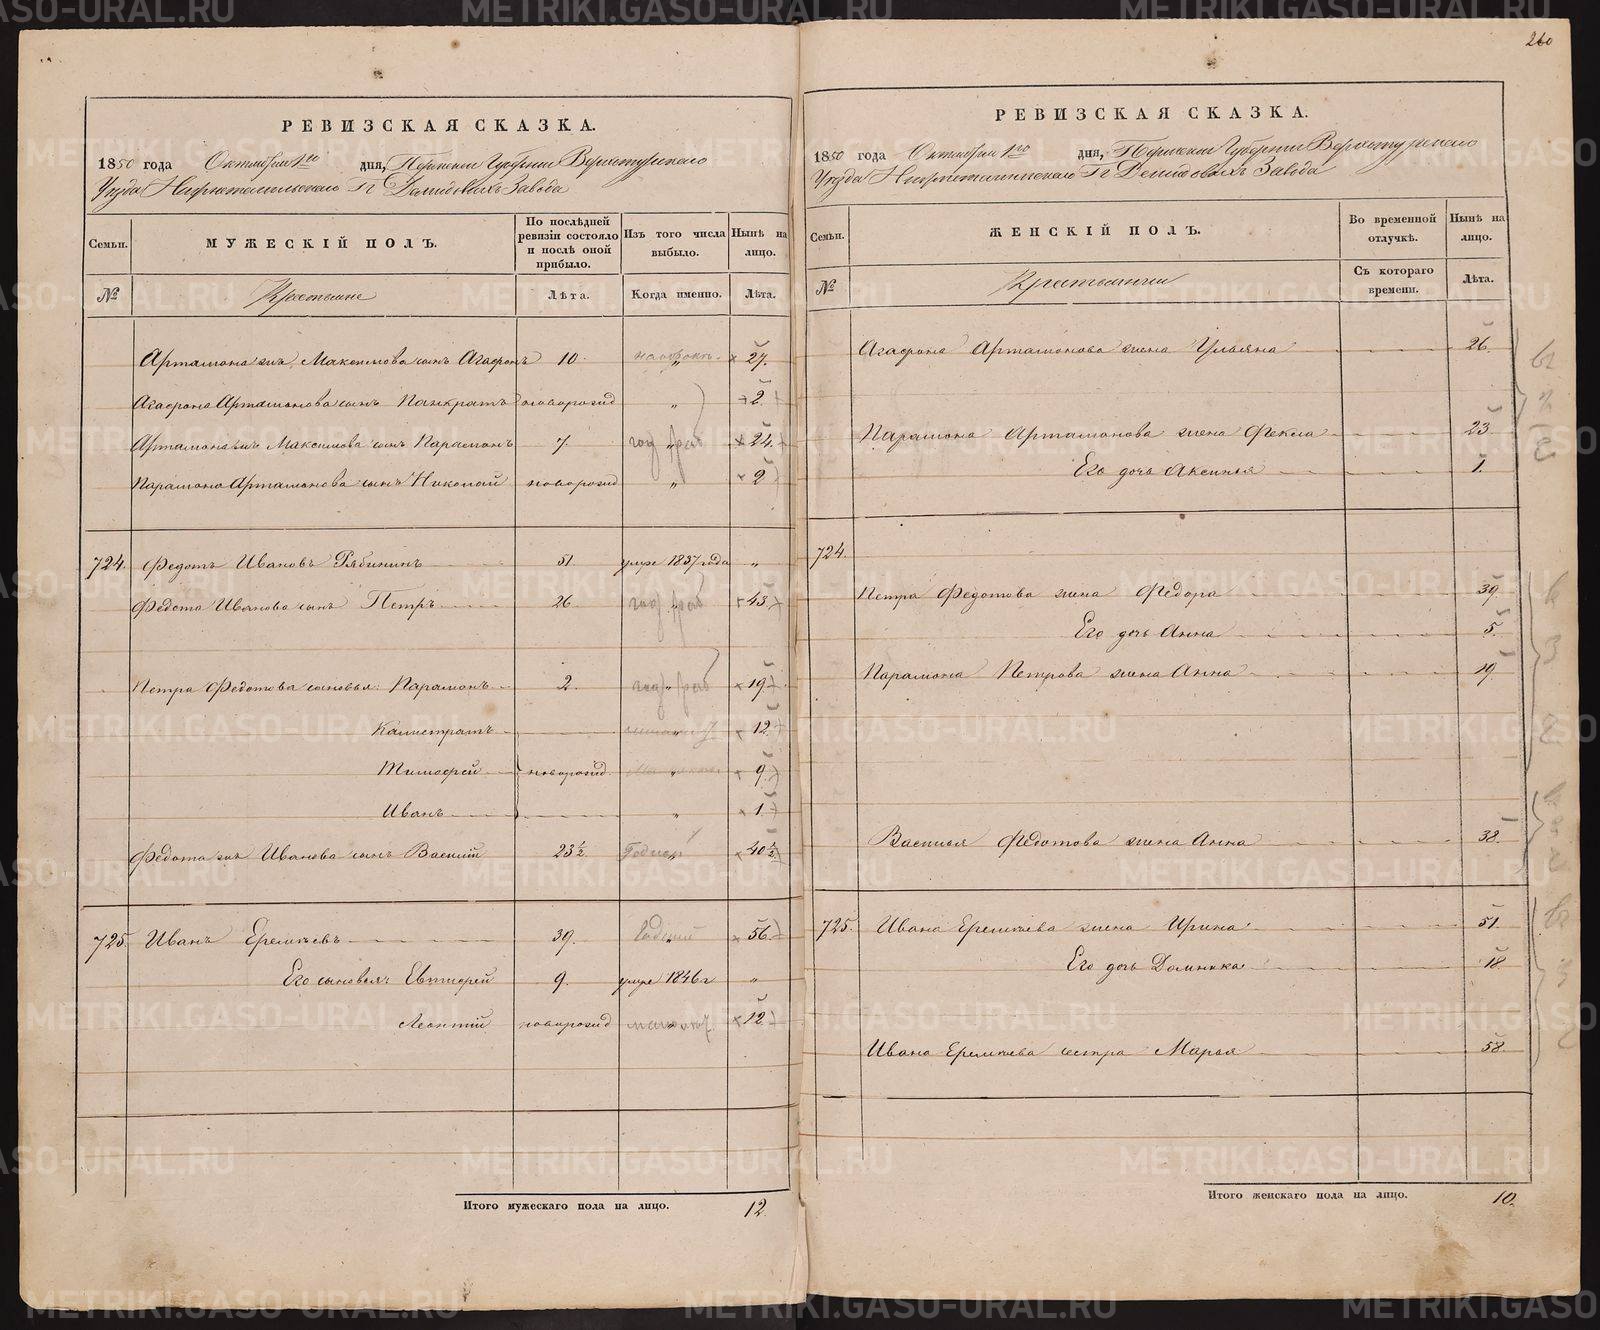 260
РЕВИЗСКАЯ СКАЗКА.
1850 года Октября 1го дня, Пермской Губерніи Верхотурскаго
Уезда Нижнетагильскаго Гг Демидовыхъ Завода
Семьи.
МУЖЕСКІЙ ПОЛЪ.
По послѣдней ревизіи состояло и послѣ оной прибыло.
Изъ того числа выбыло.
Нынѣ на лицо.
№
Крестьяне
Лѣта.
Когда именно.
Лѣта.
Артамона же Максимова сынъ Агафонъ 10. 27.
Агафона Артамонова сынъ Панкратъ новорожд „ 2.
Артамона же Максимова сынъ Парамонъ 7. год раб 24.
Парамона Артамонова сынъ Николай новорожд „ 2
724. Федотъ Ивановъ Рябининъ 51. умре 1837 года „
Федота Иванова сынъ Петръ 26. год раб 43.
Петра Федотова сыновья: Парамонъ 2. год раб 19.
Калистратъ 12.
Тимофей новорожд „ 9.
Иванъ „ 1.
Федота же Иванова сынъ Василій 23½ Годный 40½
725. Иванъ Еремѣевъ 39. 56.
Его сыновья: Евтифей 9. умре 1846 г „
Леонтій новорожд 12.
Итого мужескаго пола на лицо. 12.
РЕВИЗСКАЯ СКАЗКА.
1850 года Октября 1го дня, Пермской Губерніи Верхотурскаго
Уезда Нижнетагильскаго Гг Демидовыхъ Завода
Семьи.
ЖЕНСКІЙ ПОЛЪ.
Во временной отлучкѣ.
Нынѣ на лицо.
№
Крестьянки
Съ котораго времени.
Лѣта.
Агафона Артамонова жена Ульяна 26.
Парамона Артамонова жена Фекла 23.
Его дочь Аксинья 1.
724.
Петра Федотова жена Федора 39.
Его дочь Анна 5.
Парамона Петрова жена Анна 19.
Василья Федотова жена Анна 38.
725. Ивана Еремѣева жена Ирина 51.
Его дочь Домника 18.
Ивана Еремѣева сестра Марья 58.
Итого женскаго пола на лицо. 10.
METRIKI.GASO-URAL.RU